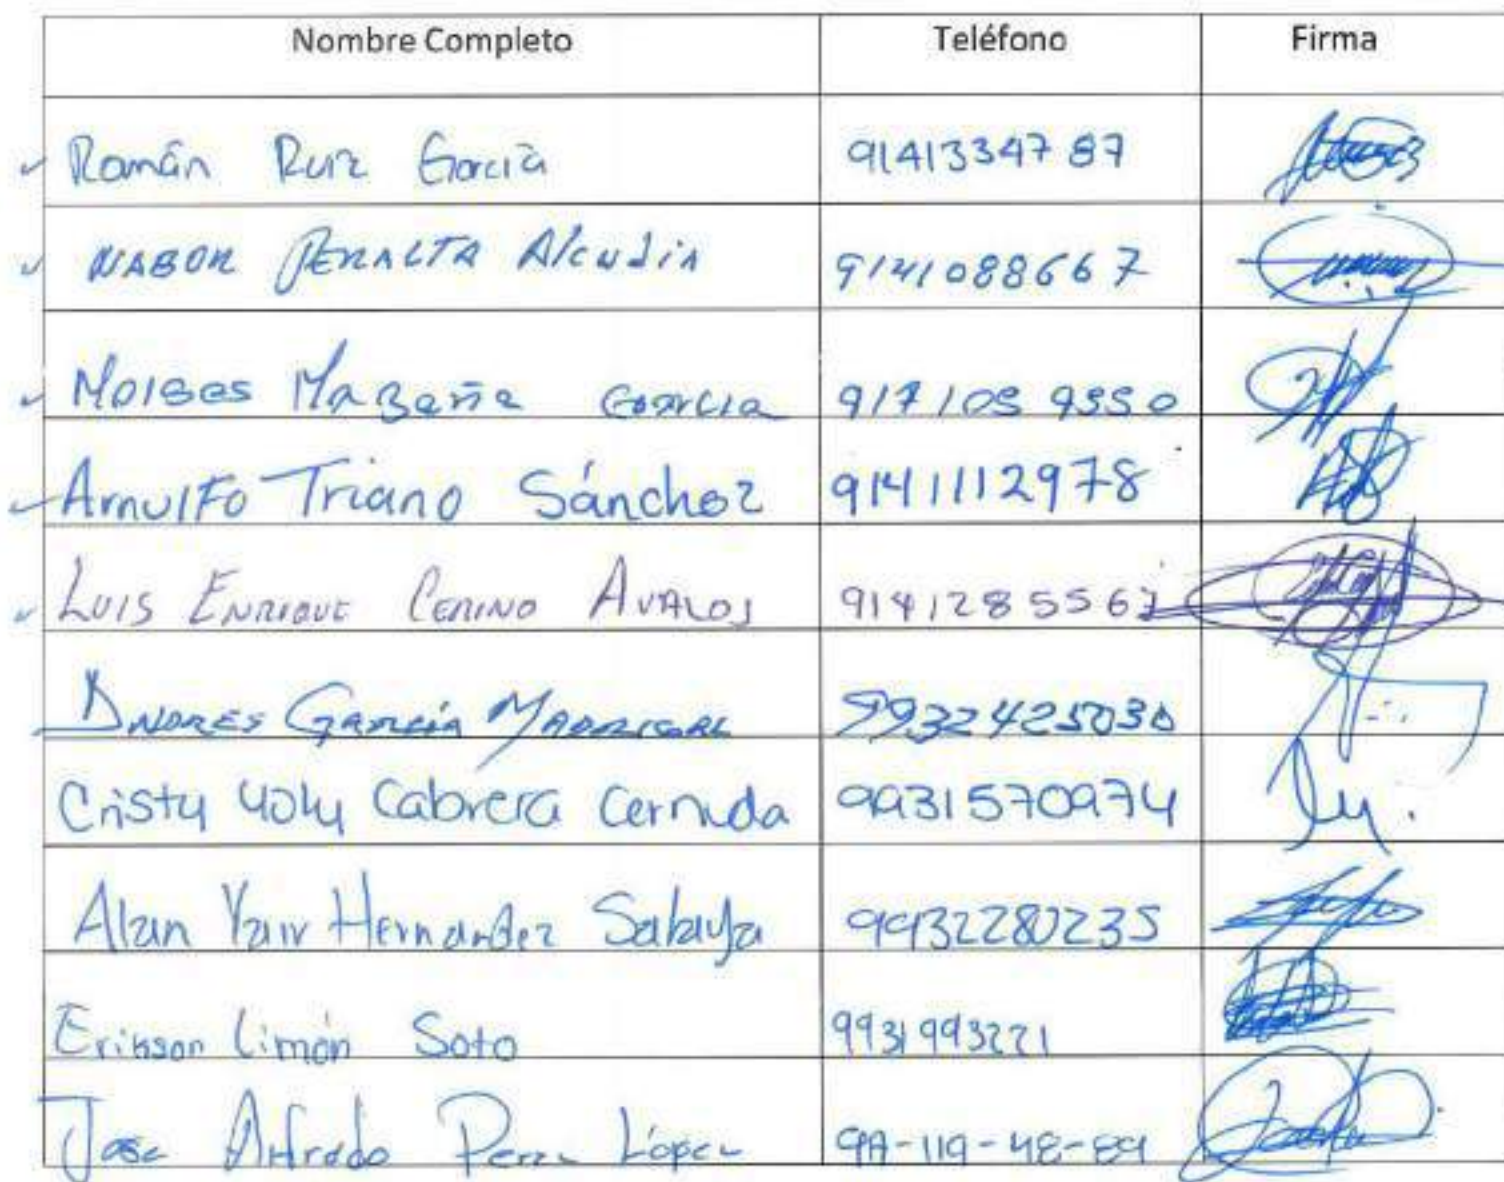 Nombre Completo Teléfono Firma
Román Ruiz García 9141334787
NABOR PERALTA Alcudia 9141088667
Moises Magaña García 917 105 9550
Arnulfo Triano Sánchez 9141112978
LUIS ENRIQUE CERINO AVALOS 9141285567
ANDRES GARCÍA MADRIGAL 9932425030
Cristy Yoly Cabrera Cernuda 9931570974
Alan Yair Hernandez Salaya 9932280235
Erikson Limón Soto 9931993221
Jose Alfredo Perez López